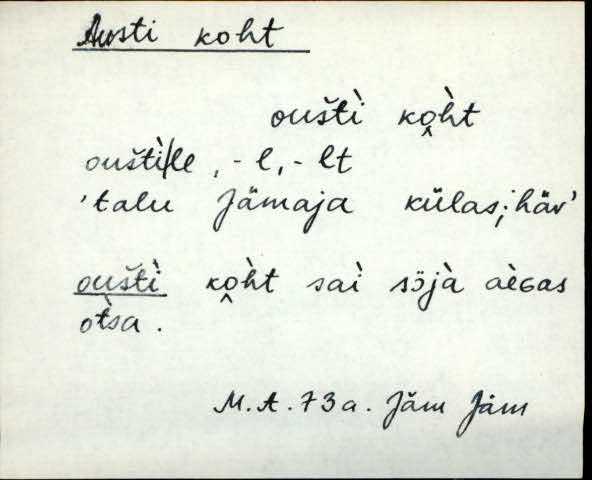 Austi koht
ouštì ko̭h̀t
ouštì/le, -l, -lt
'talu Jämaja külas; häv'
ouštì ko̭h̀t saì sõjà aèGas
ot̀sa.
M.A. 73a. Jäm Jäm